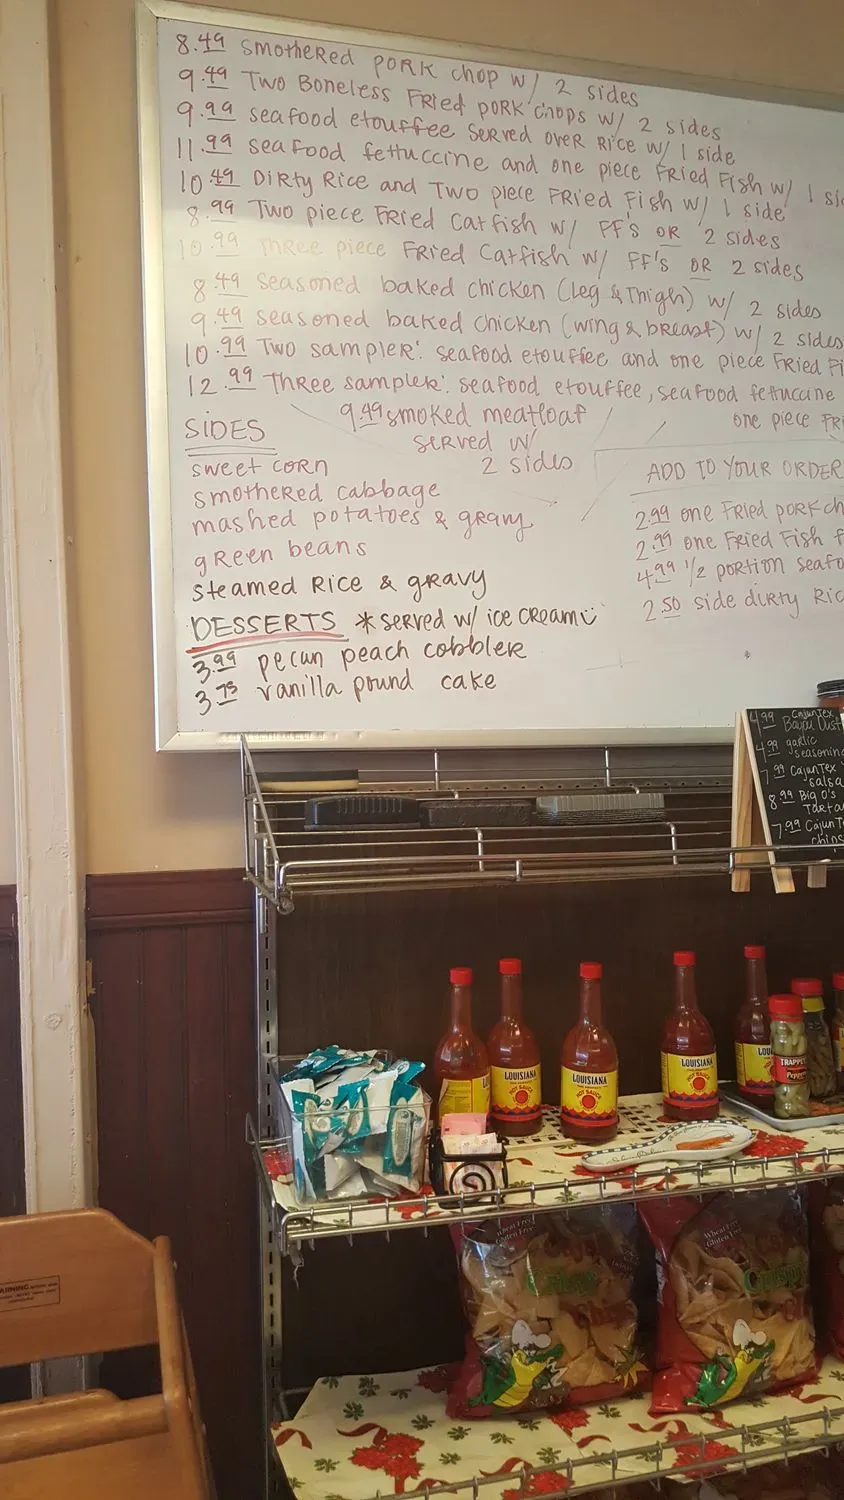 8.49 SmotheRed PORK chop w/ 2 sides
9.49 Two Boneless FRied PORK chops w/ 2 sides
9.99 seafood etouffee SeRved oveR Rice w/ 1 side
11.99 seafood fettuccine and one piece FRied Fish w/ 1
10.49 DiRty Rice and Two piece FRied Fish w/ 1 side
8.99 Two piece FRied Catfish w/ FF's OR 2 sides
10.99 Three piece FRied Catfish w/ FF's OR 2 sides
8.49 seasoned baked chicken (leg & Thigh) w/ 2 sides
9.49 seasoned baked chicken (wing & breast) w/ 2 sides
10.99 Two sampleR: seafood etouffee and one piece FRied
12.99 Three sampleR: seafood etouffee, seafood fettuccine
one piece
9.49 smoked meatloaf
seRved w/
2 sides
SIDES
sweet coRn
smotheRed cabbage
mashed potatoes & gRavy
gReen beans
steamed Rice & gRavy
DESSERTS *seRved w/ ice cReam
3.99 pecan peach cobbleR
3.75 vanilla pound cake
ADD TO YOUR ORDER
2.99 one FRied poRk
2.99 one FRied Fish
4.99 1/2 poRtion
2.50 side diRty
4.99 CajunTex
Bayou Dust
4.99 garlic
seasoning
7.99 CajunTex
salsa
8.99 Big O's
7.99
chips
LOUISIANA
HOT SAUCE
LOUISIANA
HOT SAUCE
LOUISIANA
HOT SAUCE
TRAPPEY'S
Peppers
Wheat Free
Gluten Free
Wheat Free
Gluten Free
Crispy
WARNING